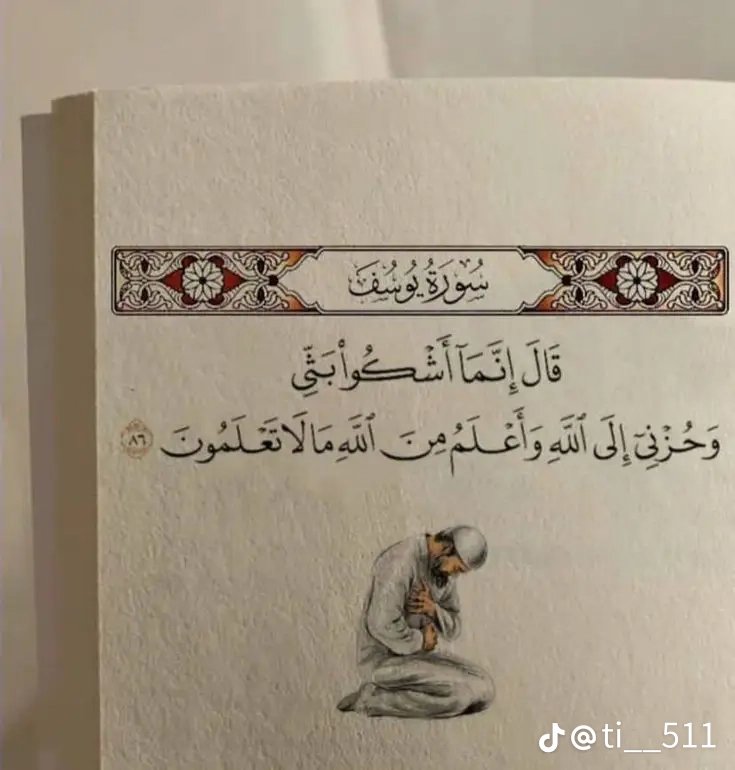 سُورَةُ يُوسُفَ
قَالَ إِنَّمَآ أَشْكُوا۟ بَثِّى
وَحُزْنِىٓ إِلَى ٱللَّهِ وَأَعْلَمُ مِنَ ٱللَّهِ مَا لَا تَعْلَمُونَ ٨٦
@ti__511